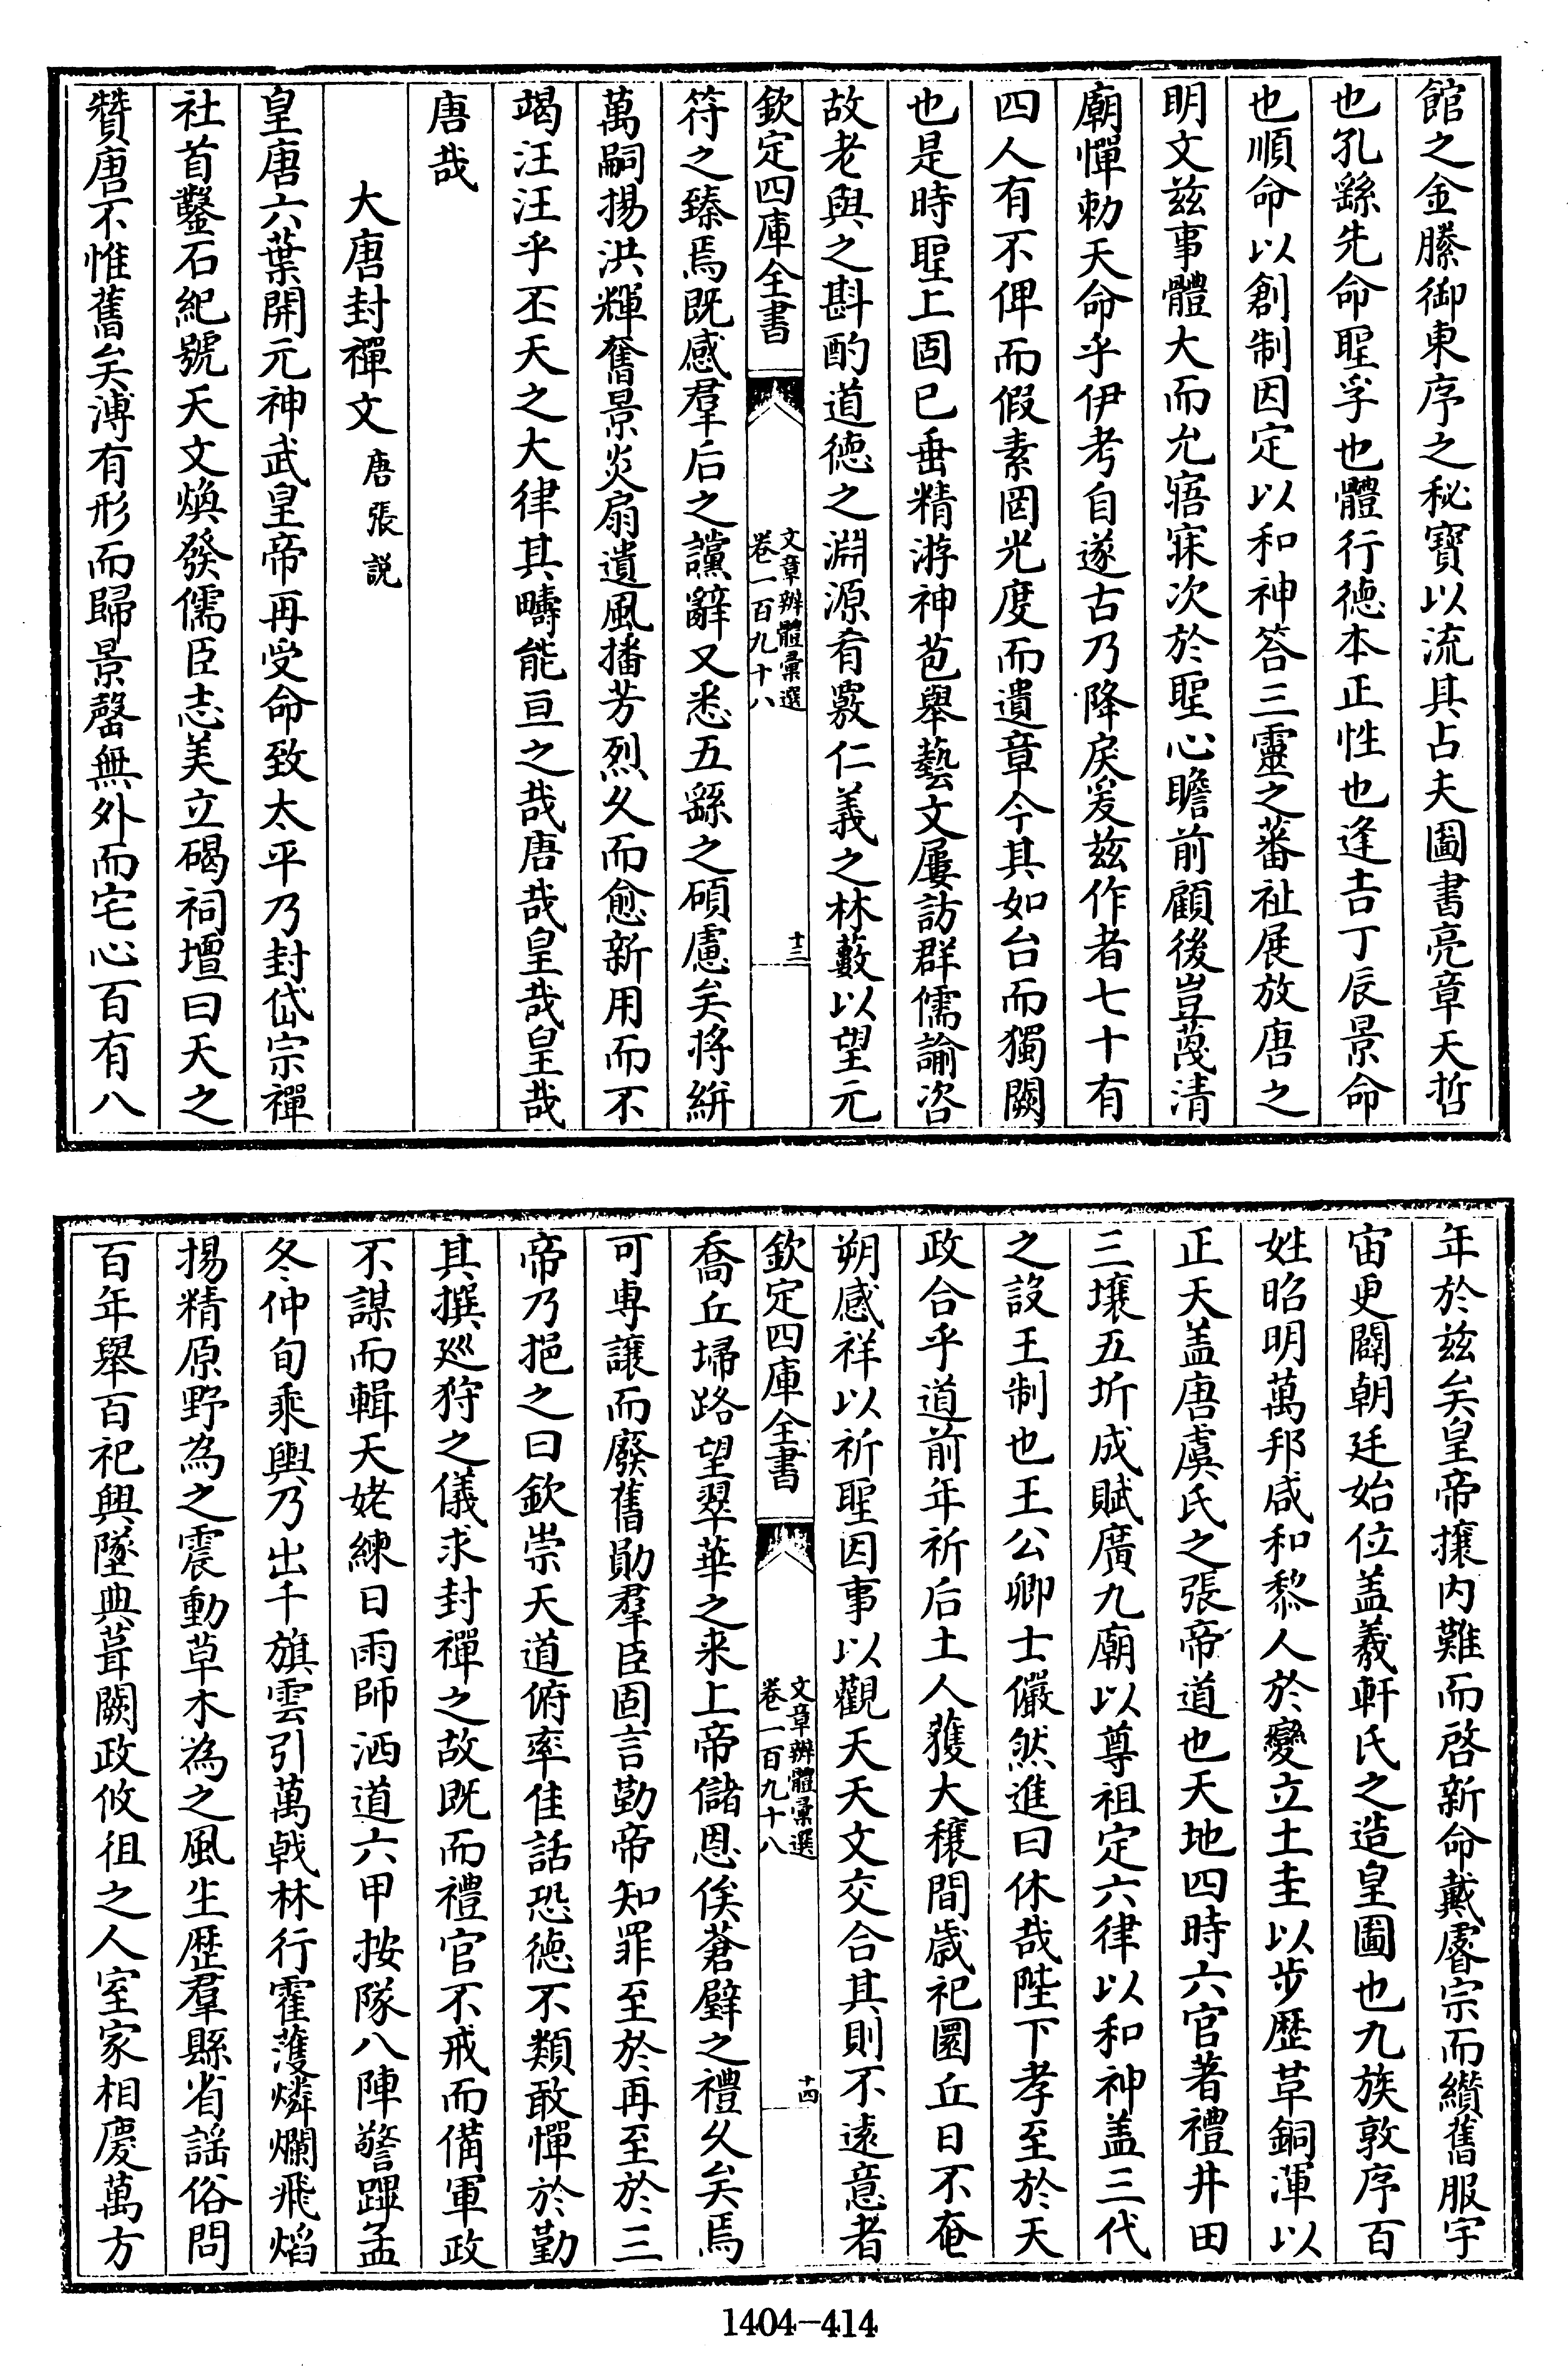 館之金縢御東序之秘寶以流其占夫圖書亮章天哲
也孔繇先命聖孚也體行德本正性也逢吉丁辰景命
也順命以創制因定以和神答三靈之蕃祉展放唐之
明文兹事體大而允寤寐次於聖心瞻前顧後豈蔑清
廟憚勅天命乎伊考自遂古乃降戾爰兹作者七十有
四人有不俾而假素罔光度而遺章今其如台而獨闕
也是時聖上固已垂精游神苞舉藝文屢訪群儒諭咨
故老與之斟酌道德之淵源肴覈仁義之林藪以望元
欽定四庫全書
文章辨體彙選
卷一百九十八
十三
符之臻焉既感羣后之讜辭又悉五繇之碩慮矣将絣
萬嗣揚洪輝奮景炎扇遺風播芳烈久而愈新用而不
竭汪汪乎丕天之大律其疇能亘之哉唐哉皇哉皇哉
唐哉
大唐封禪文 唐張説
皇唐六葉開元神武皇帝再受命致太平乃封岱宗禪
社首鑿石紀號天文煥發儒臣志美立碣祠壇曰天之
贊唐不惟舊矣溥有形而歸景罄無外而宅心百有八
年於兹矣皇帝攘内難而啓新命戴睿宗而纘舊服宇
宙更闢朝廷始位盖羲軒氏之造皇圖也九族敦序百
姓昭明萬邦咸和黎人於變立土圭以步歷草銅渾以
正天盖唐虞氏之張帝道也天地四時六官著禮井田
三壤五圻成賦廣九廟以尊祖定六律以和神盖三代
之設王制也王公卿士儼然進曰休哉陛下孝至於天
政合乎道前年祈后土人獲大穰間歲祀圜丘日不奄
朔感祥以祈聖因事以觀天天文交合其則不逺意者
欽定四庫全書
文章辨體彙選
卷一百九十八
十四
喬丘埽路望翠華之来上帝儲恩俟蒼璧之禮久矣焉
可専讓而廢舊勛羣臣固言勤帝知罪至於再至於三
帝乃挹之曰欽崇天道俯率佳話恐德不類敢憚於勤
其撰廵狩之儀求封禪之故既而禮官不戒而備軍政
不謀而輯天姥練日雨師洒道六甲按隊八陣警蹕孟
冬仲旬乘輿乃出千旗雲引萬戟林行霍濩燐爛飛焰
揚精原野為之震動草木為之風生歴羣縣省謡俗問
百年舉百祀興墜典葺闕政攸徂之人室家相慶萬方
1404-414